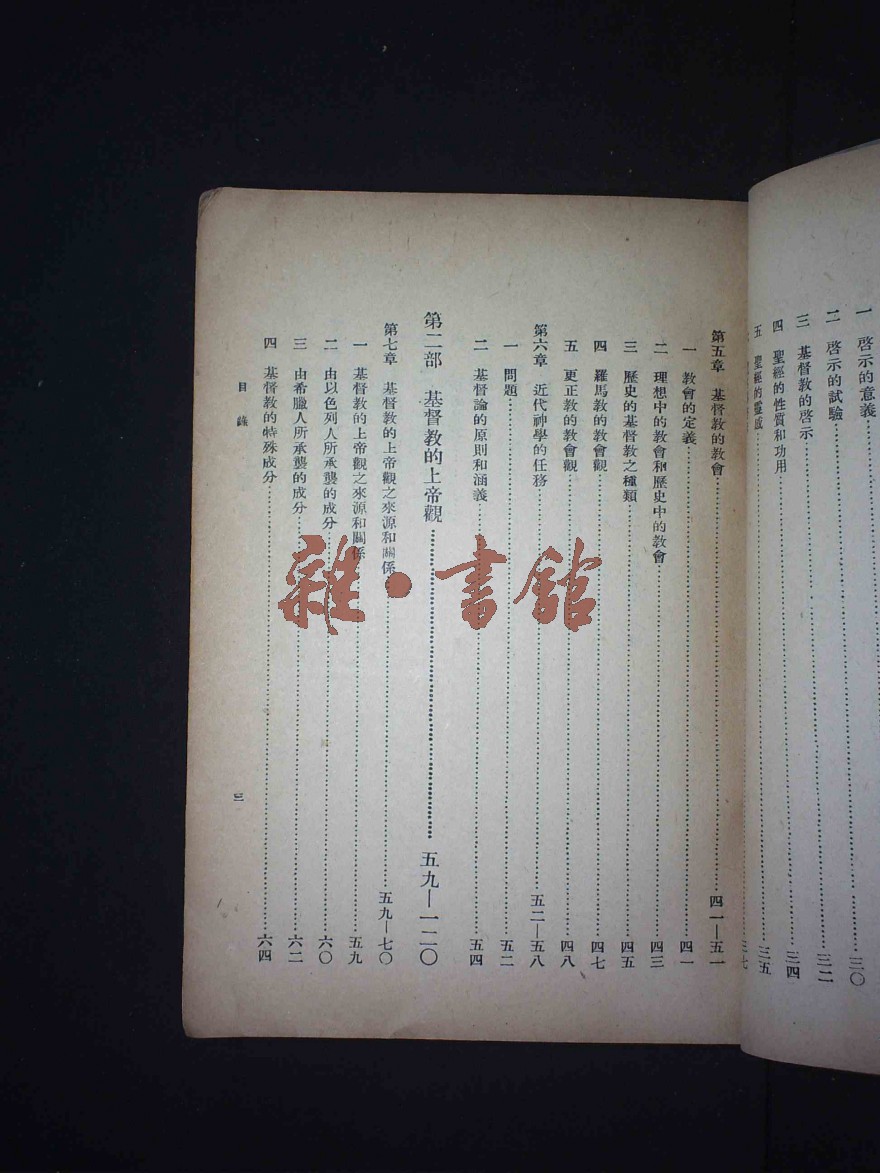 一　啓示的意義……三〇
二　啓示的試驗……三二
三　基督教的啓示……三四
四　聖經的性質和功用……三五
五　聖經的靈感……三七
第五章　基督教的教會……四一—五一
一　教會的定義……四一
二　理想中的教會和歷史中的教會……四三
三　歷史的基督教之種類……四五
四　羅馬教的教會觀……四七
五　更正教的教會觀……四八
第六章　近代神學的任務……五二—五八
一　問題……五二
二　基督論的原則和涵義……五四
第二部　基督教的上帝觀……五九—一二〇
第七章　基督教的上帝觀之來源和關係……五九—七〇
一　基督教的上帝觀之來源和關係……五九
二　由以色列人所承襲的成分……六〇
三　由希臘人所承襲的成分……六二
四　基督教的特殊成分……六四
目錄
雜·書館